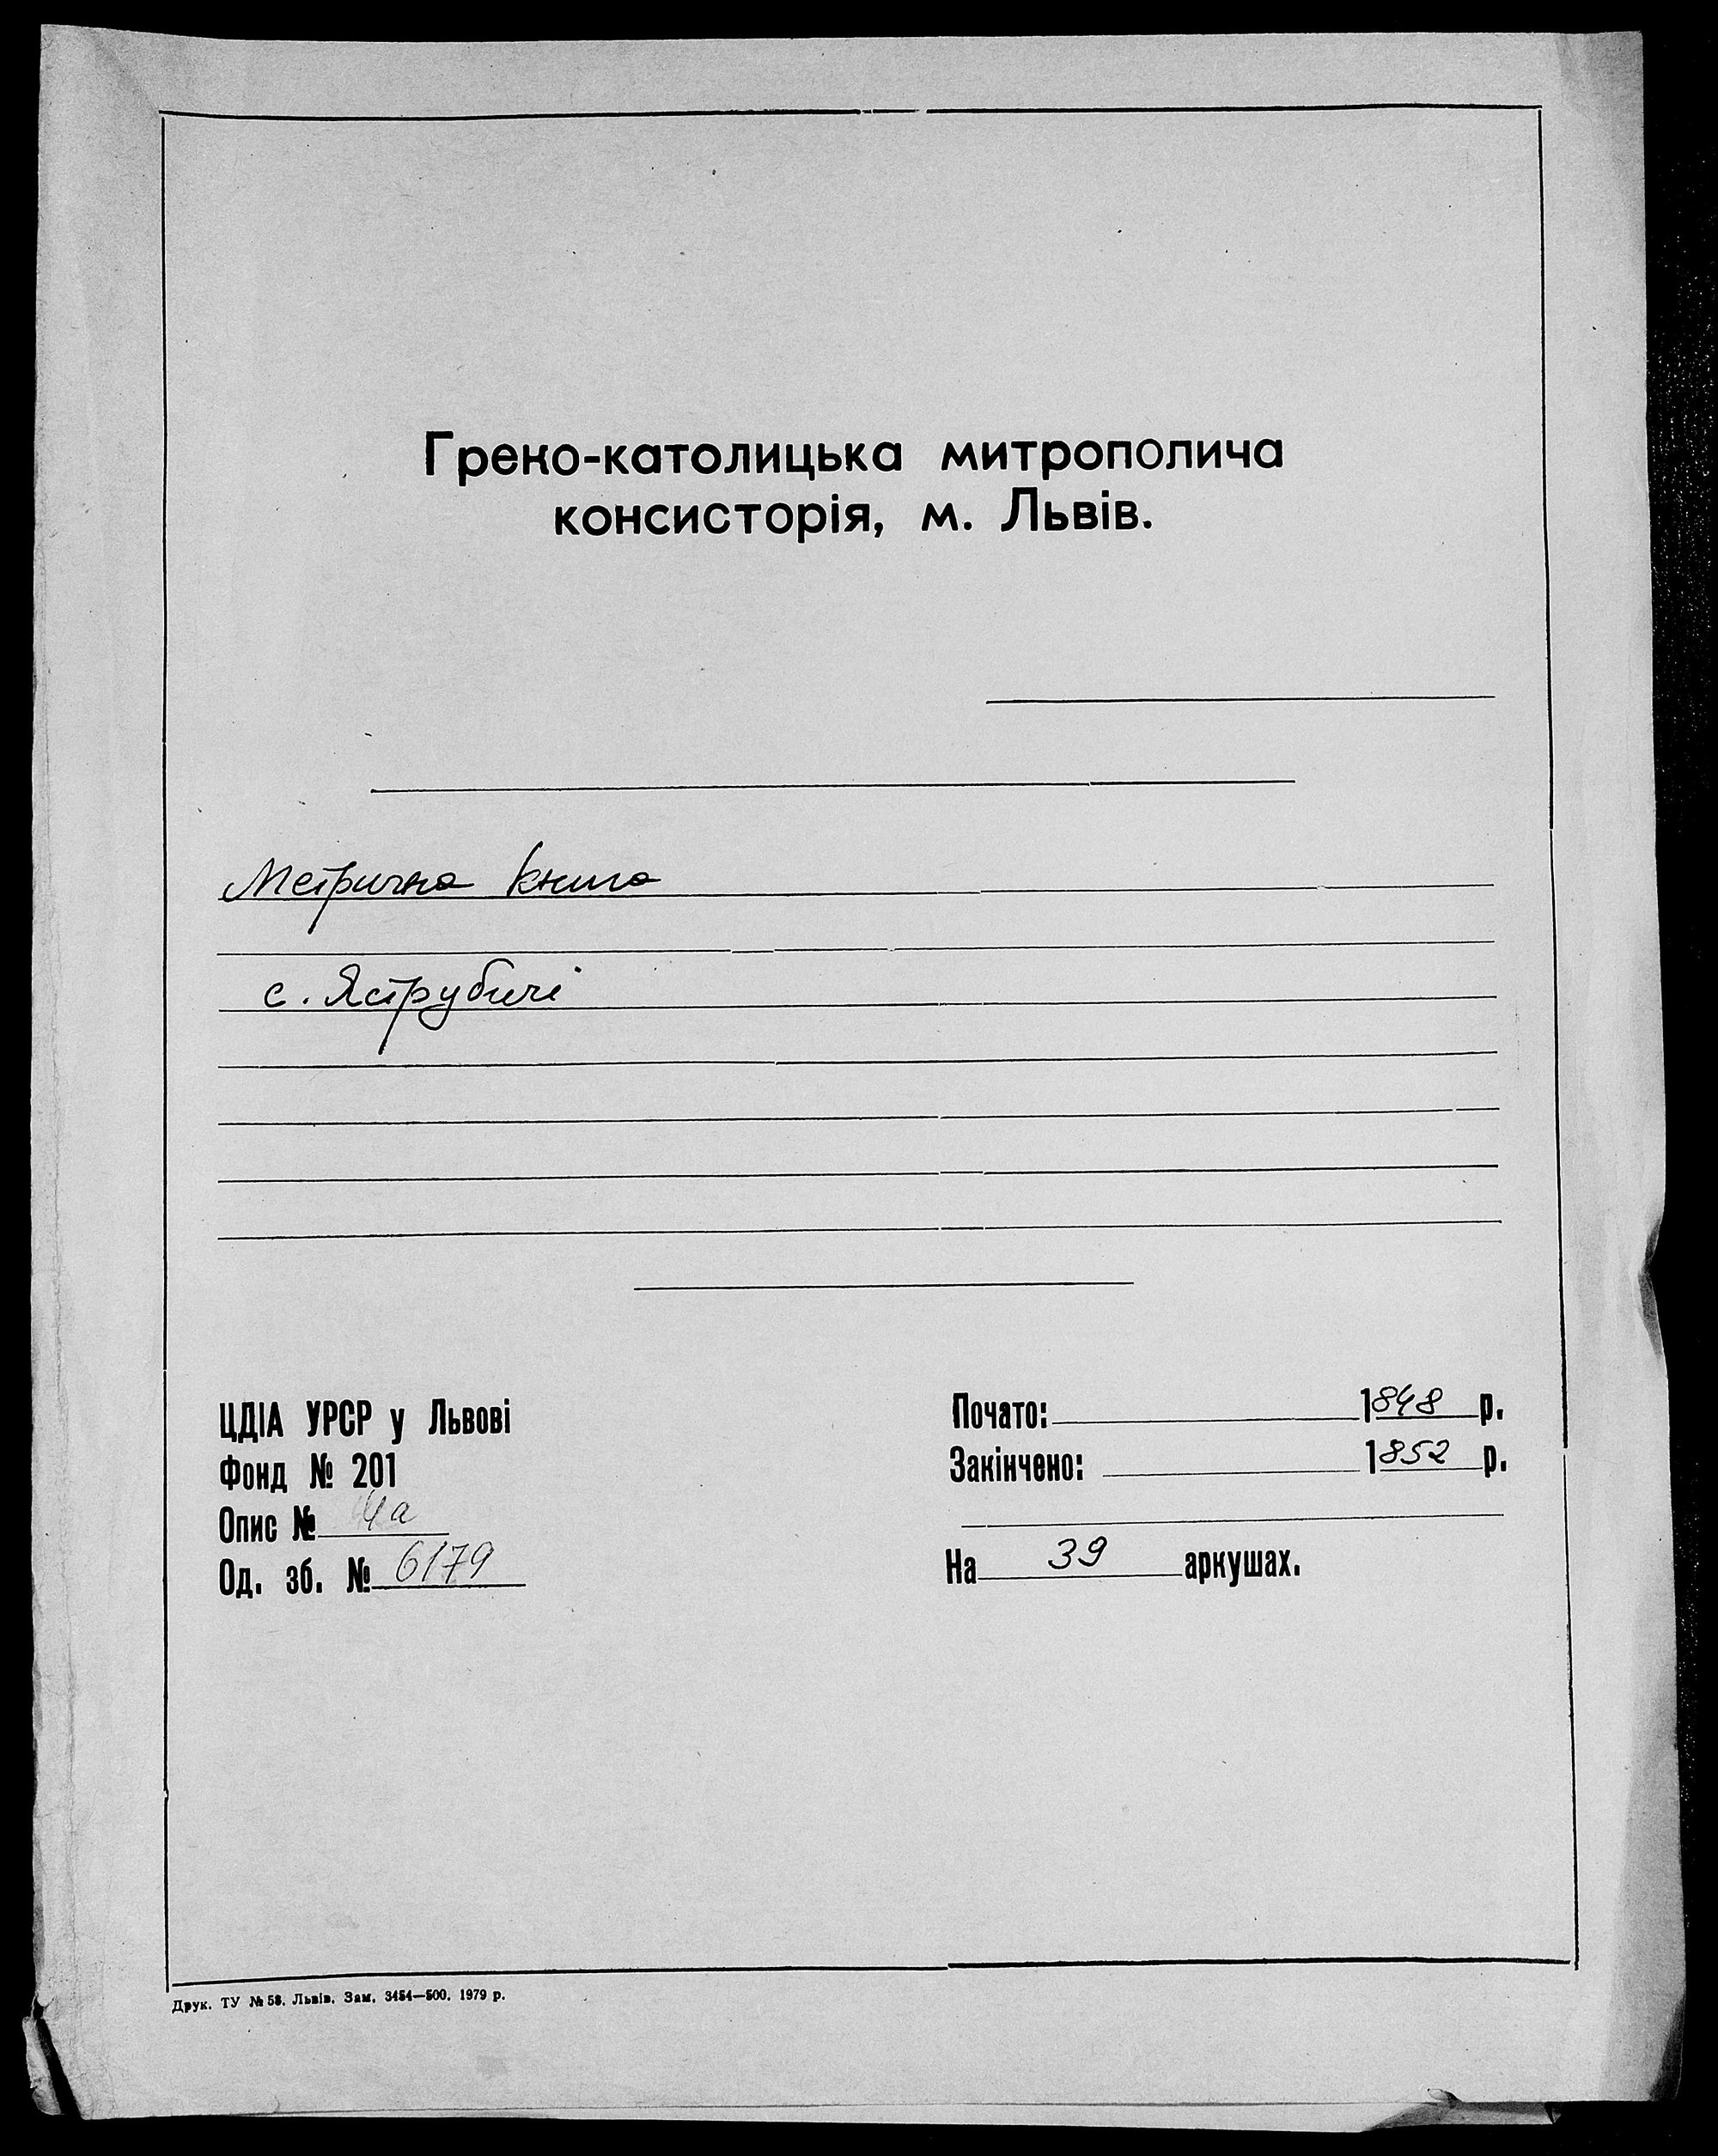 Греко-католицька митрополича
консисторія, м. Львів.
Метрична книга
с. Яструбичі
ЦДІА УРСР у Львові
Фонд № 201
Опис № 4а
Од. зб. № 6179
Почато: 1848 р.
Закінчено: 1852 р.
На 39 аркушах.
Друк. ТУ № 58. Львів. Зам. 3454—500. 1979 р.